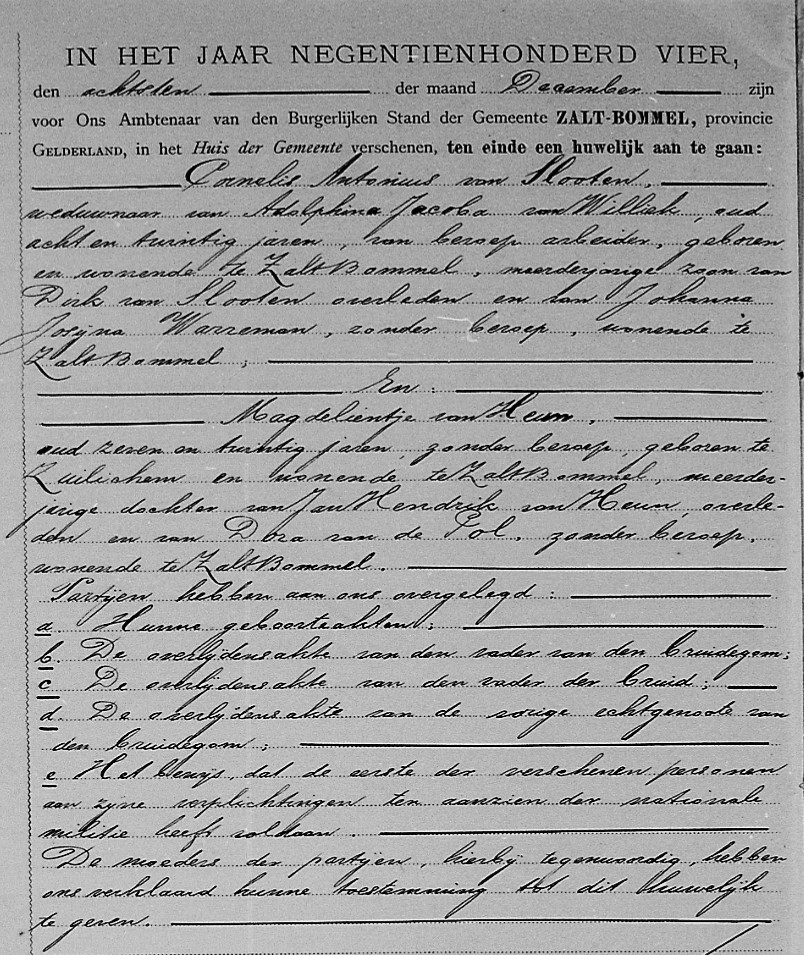 IN HET JAAR NEGENTIENHONDERD VIER,
den achtsten der maand December zijn
voor Ons Ambtenaar van den Burgerlijken Stand der Gemeente ZALT-BOMMEL, provincie
GELDERLAND, in het Huis der Gemeente verschenen, ten einde een huwelijk aan te gaan:
Cornelis Antonius van Slooten,
weduwnaar van Adolphina Jacoba van Willick, oud
acht en twintig jaren, van beroep arbeider, geboren
en wonende te Zalt Bommel, meerderjarige zoon van
Dirk van Slooten overleden en van Johanna
Josyna Warreman, zonder beroep, wonende te
Zalt Bommel;
En:
Magdelientje van Heun,
oud zeven en twintig jaren, zonder beroep, geboren te
Zuilichem en wonende te Zalt Bommel, meerder-
jarige dochter van Jan Hendrik van Heun, overle-
den en van Dora van de Pol, zonder beroep,
wonende te Zalt Bommel.
Partijen hebben aan ons overgelegd:
a. Hunne geboorteakten;
b. De overlijdensakte van den vader van den bruidegom;
c. De overlijdensakte van den vader der bruid;
d. De overlijdensakte van de vorige echtgenoote van
den bruidegom;
e Het bewijs, dat de eerste der verschenen personen
aan zijne verplichtingen ten aanzien der nationale
militie heeft voldaan.
De moeders der partijen, hierbij tegenwoordig, hebben
ons verklaard hunne toestemming tot dit huwelijk
te geven.